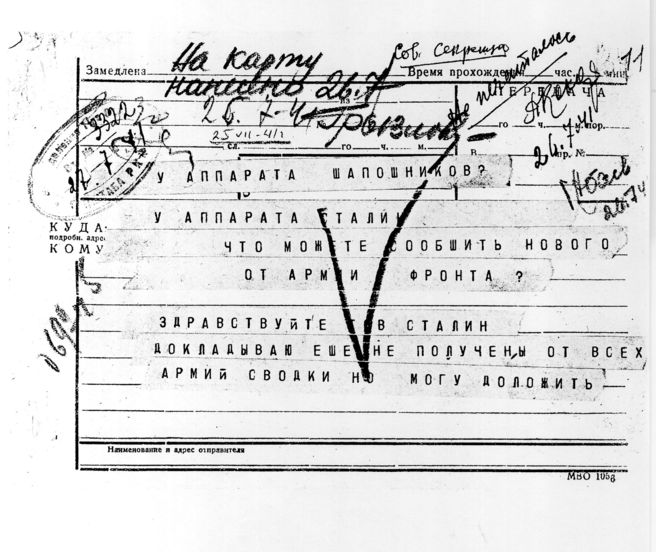 Сов. Секретно
На карту
нанесено 26.7
Замедлена
Время прохожден час. мин.
26.7.41
25 VII-41г
сл. го ч. м.
го ч. м. пор.
В. пр. №
26.7.41
26.7.41
33223
27.7
У АППАРАТА ШАПОШНИКОВ?
У АППАРАТА СТАЛИН
КУДА
подробн. адрес
КОМУ
ЧТО МОЖЕТЕ СООБШИТЬ НОВОГО
ОТ АРМИИ ФРОНТА ?
ЗДРАВСТВУЙТЕ ТОВ СТАЛИН
ДОКЛАДЫВАЮ ЕШЕ НЕ ПОЛУЧЕНЫ ОТ ВСЕХ
АРМИЙ СВОДКИ НО МОГУ ДОЛОЖИТЬ
Наименование и адрес отправителя
МВО 1053